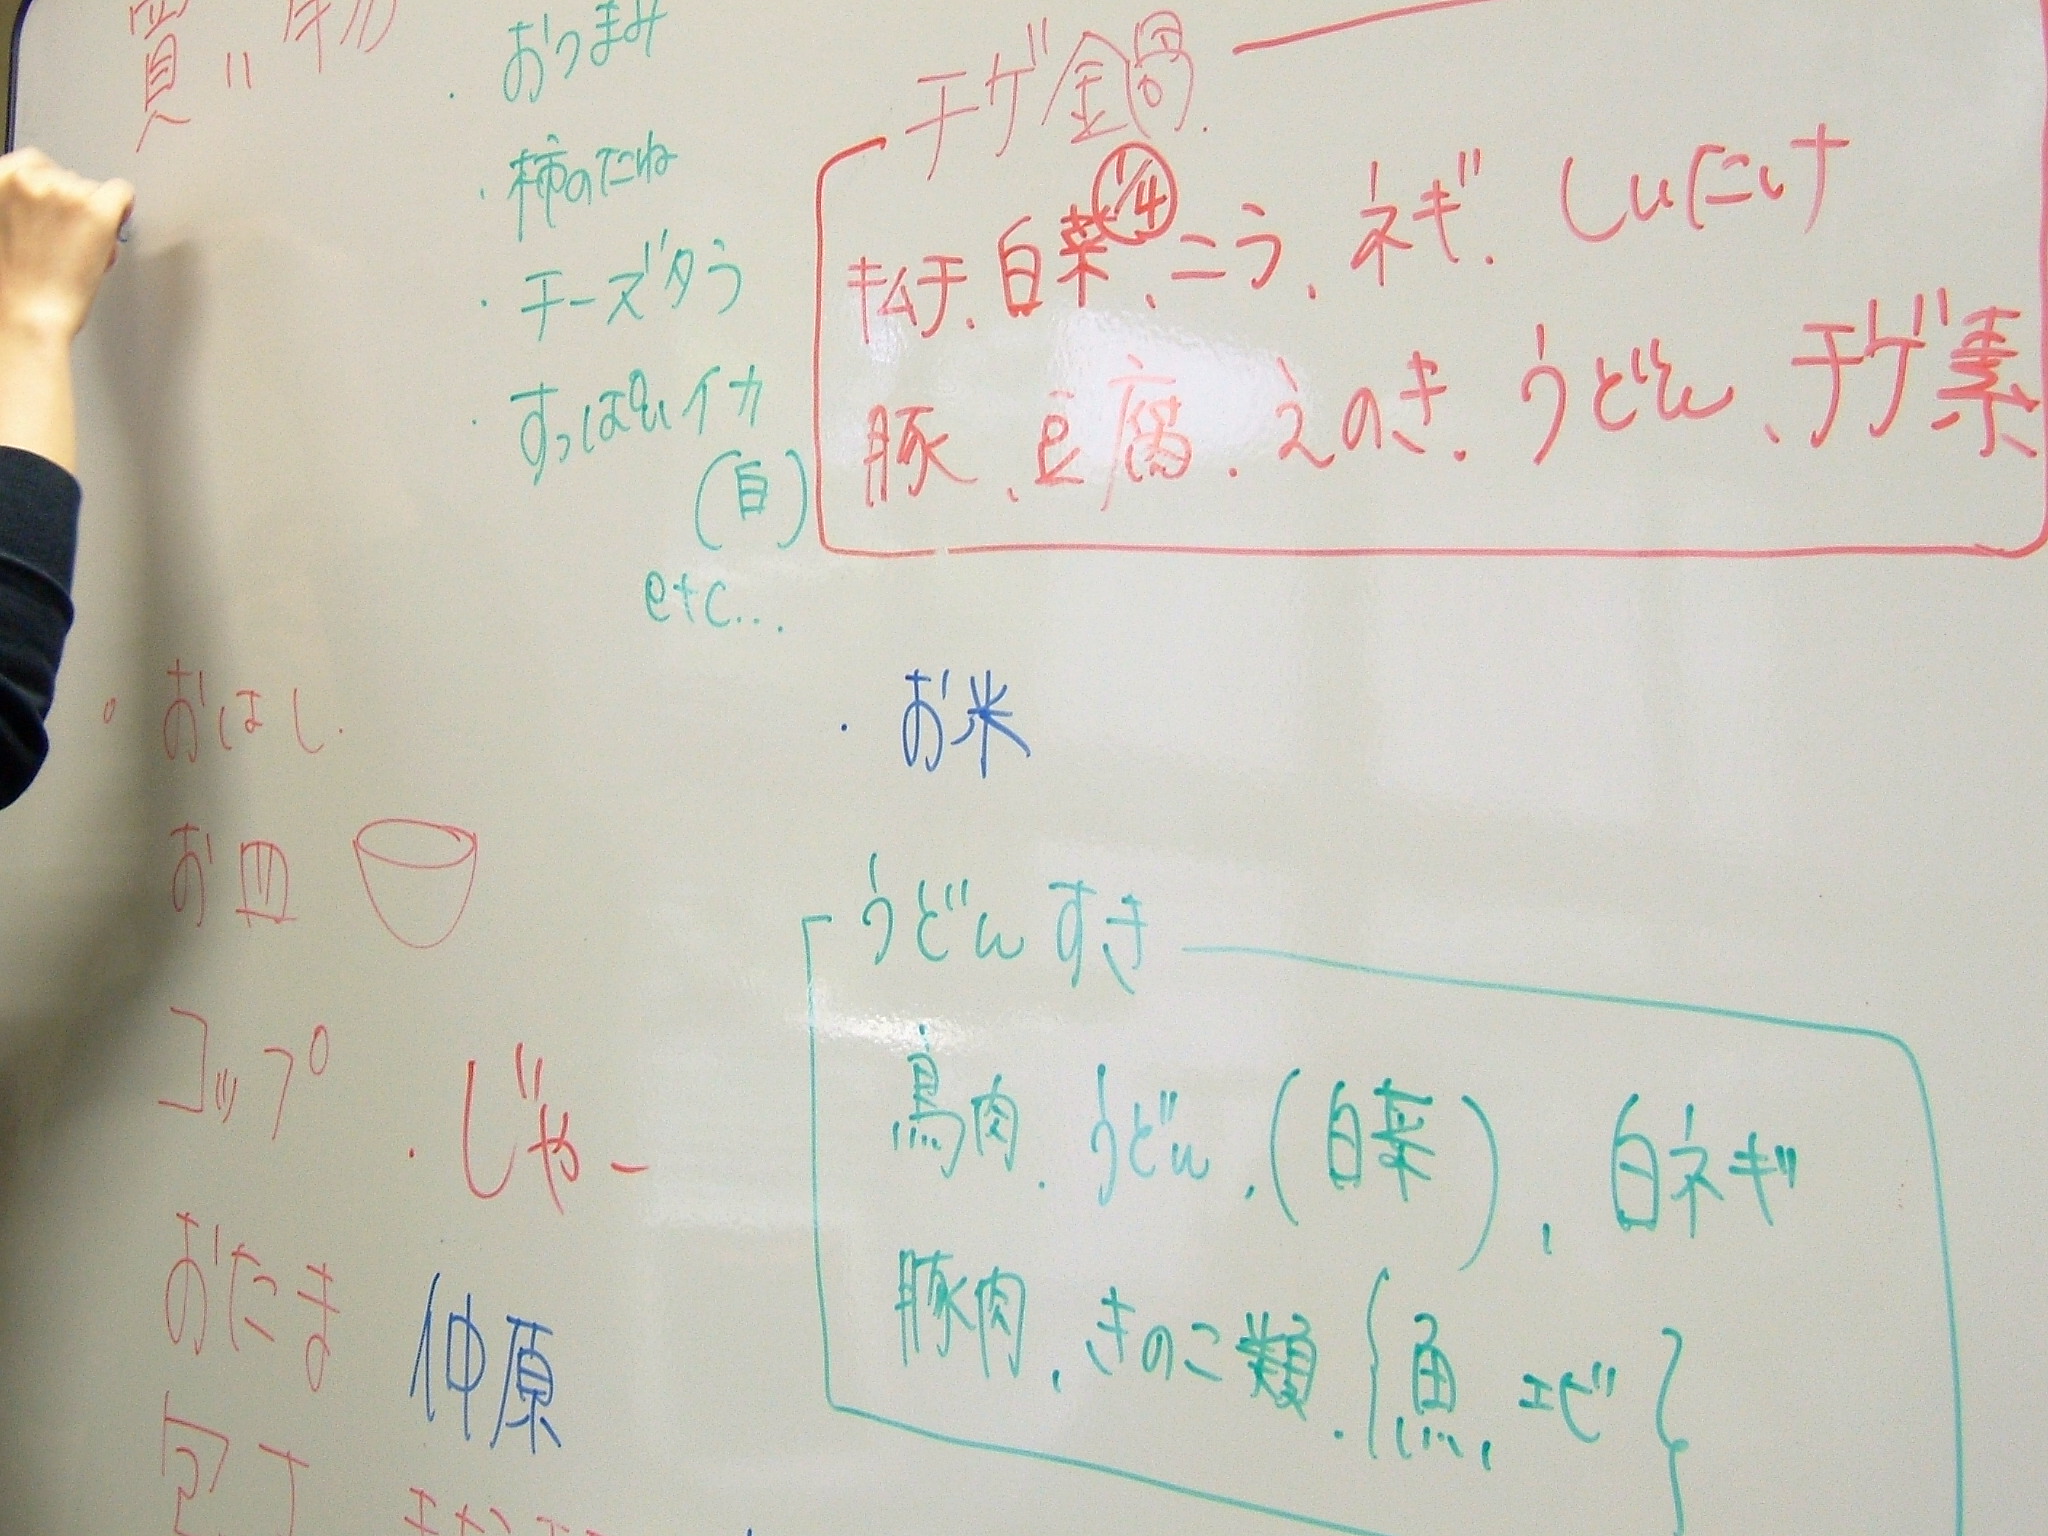 買い物
・おつまみ
・柿のたね
・チーズタラ
・すっぱいイカ
(白)
etc...
チゲ鍋
キムチ、白菜1/4、ニラ、ネギ、しいたけ
豚、豆腐、えのき、うどん、チゲ素
・おはし
お皿
コップ
おたま
包丁
・じゃー
仲原
・お米
うどんすき
鳥肉、うどん、(白菜)、白ネギ
豚肉、きのこ類、{魚、エビ}